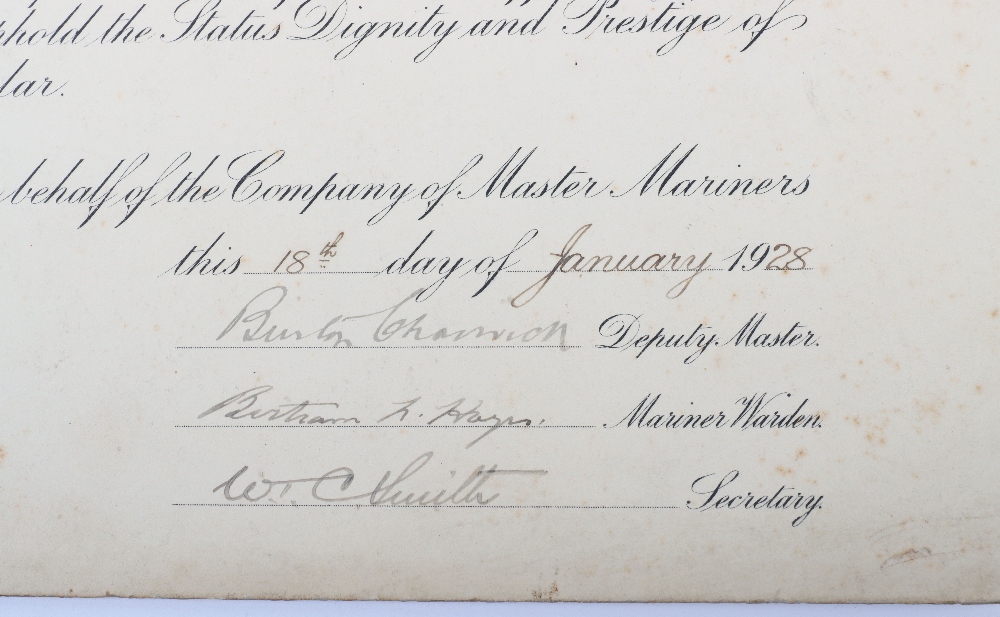 phold the Status Dignity and Prestige of
lar.
behalf of the Company of Master Mariners
this 18th day of January 1928
Burton Chadwick Deputy Master.
Bertram F. Hayes. Mariner Warden.
W. C Smith Secretary.